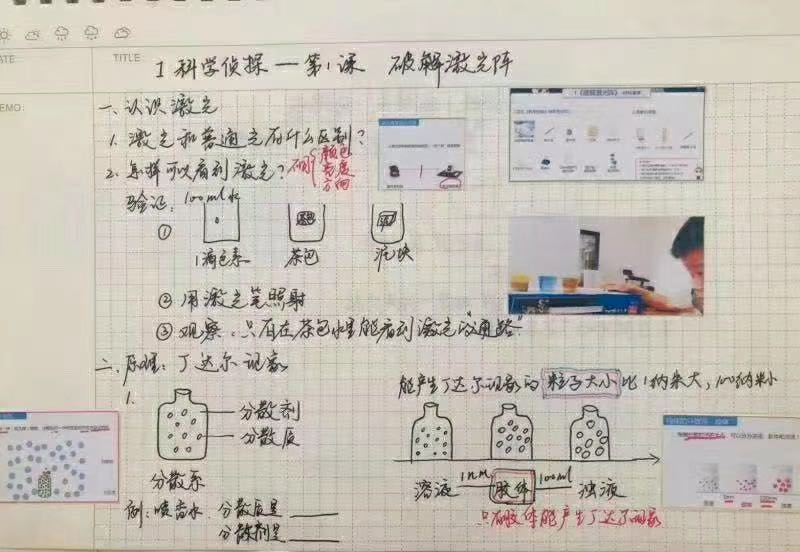 TITLE
I 科学侦探一第1课 破解激光阵
一、认识激光
1. 激光和普通光有什么区别?
2. 怎样可以看到激光?
不同
颜色
亮度
方向
验证: 100ml水
①
1滴色素 茶包 泥块
② 用激光笔照射
③ 观察,只有在茶包水里能看到激光的"通路"
二、原理: 丁达尔现象
能产生丁达尔现象的 粒子大小 比1纳米大, 100纳米小
1.
分散剂
分散质
分散系
溶液 1nm 胶体 100ml 浊液
例: 喷香水. 分散质是 ____
分散剂是 ____
只有胶体能产生丁达尔现象